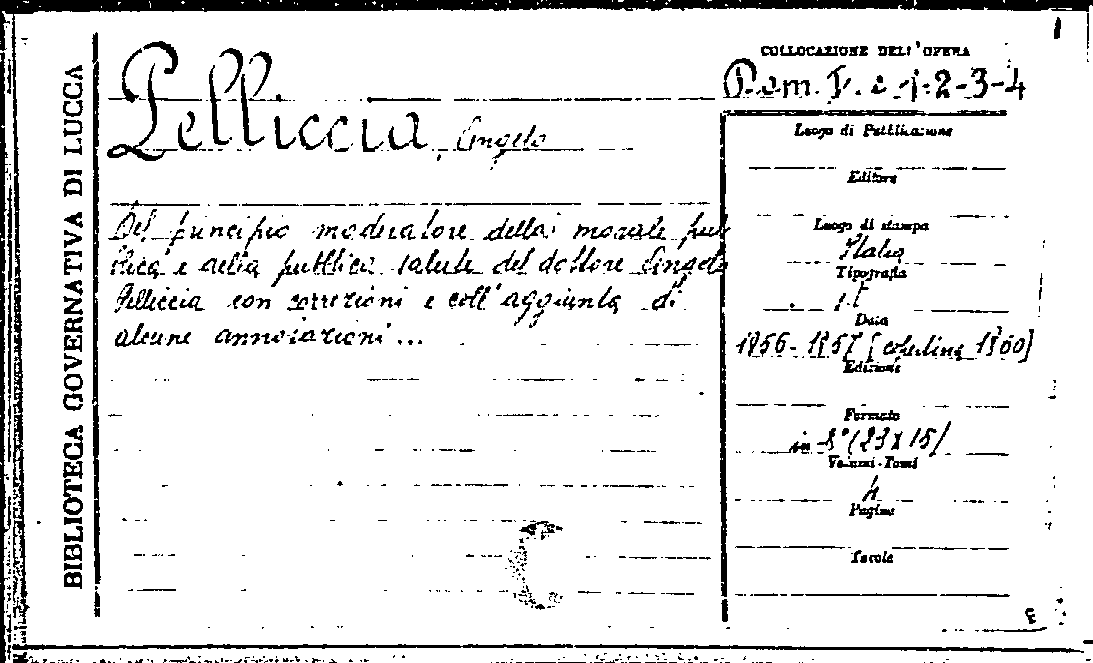 BIBLIOTECA GOVERNATIVA DI LUCCA
Pelliccia, Angelo
Del principio moderatore della morale pub
blica e della pubblica salute del dottore Angelo
Pelliccia con correzioni e coll'aggiunta di
alcune annotazioni...
1
COLLOCAZIONE DELL'OPERA
2-3-4
Luogo di Pubblicazione
Editore
Luogo di stampa
Italia
Tipografia
Data
1856-1857 [copertina 1860]
Edizione
Formato
in-8° (23x15)
Volumi-Tomi
4
Pagine
Tavole